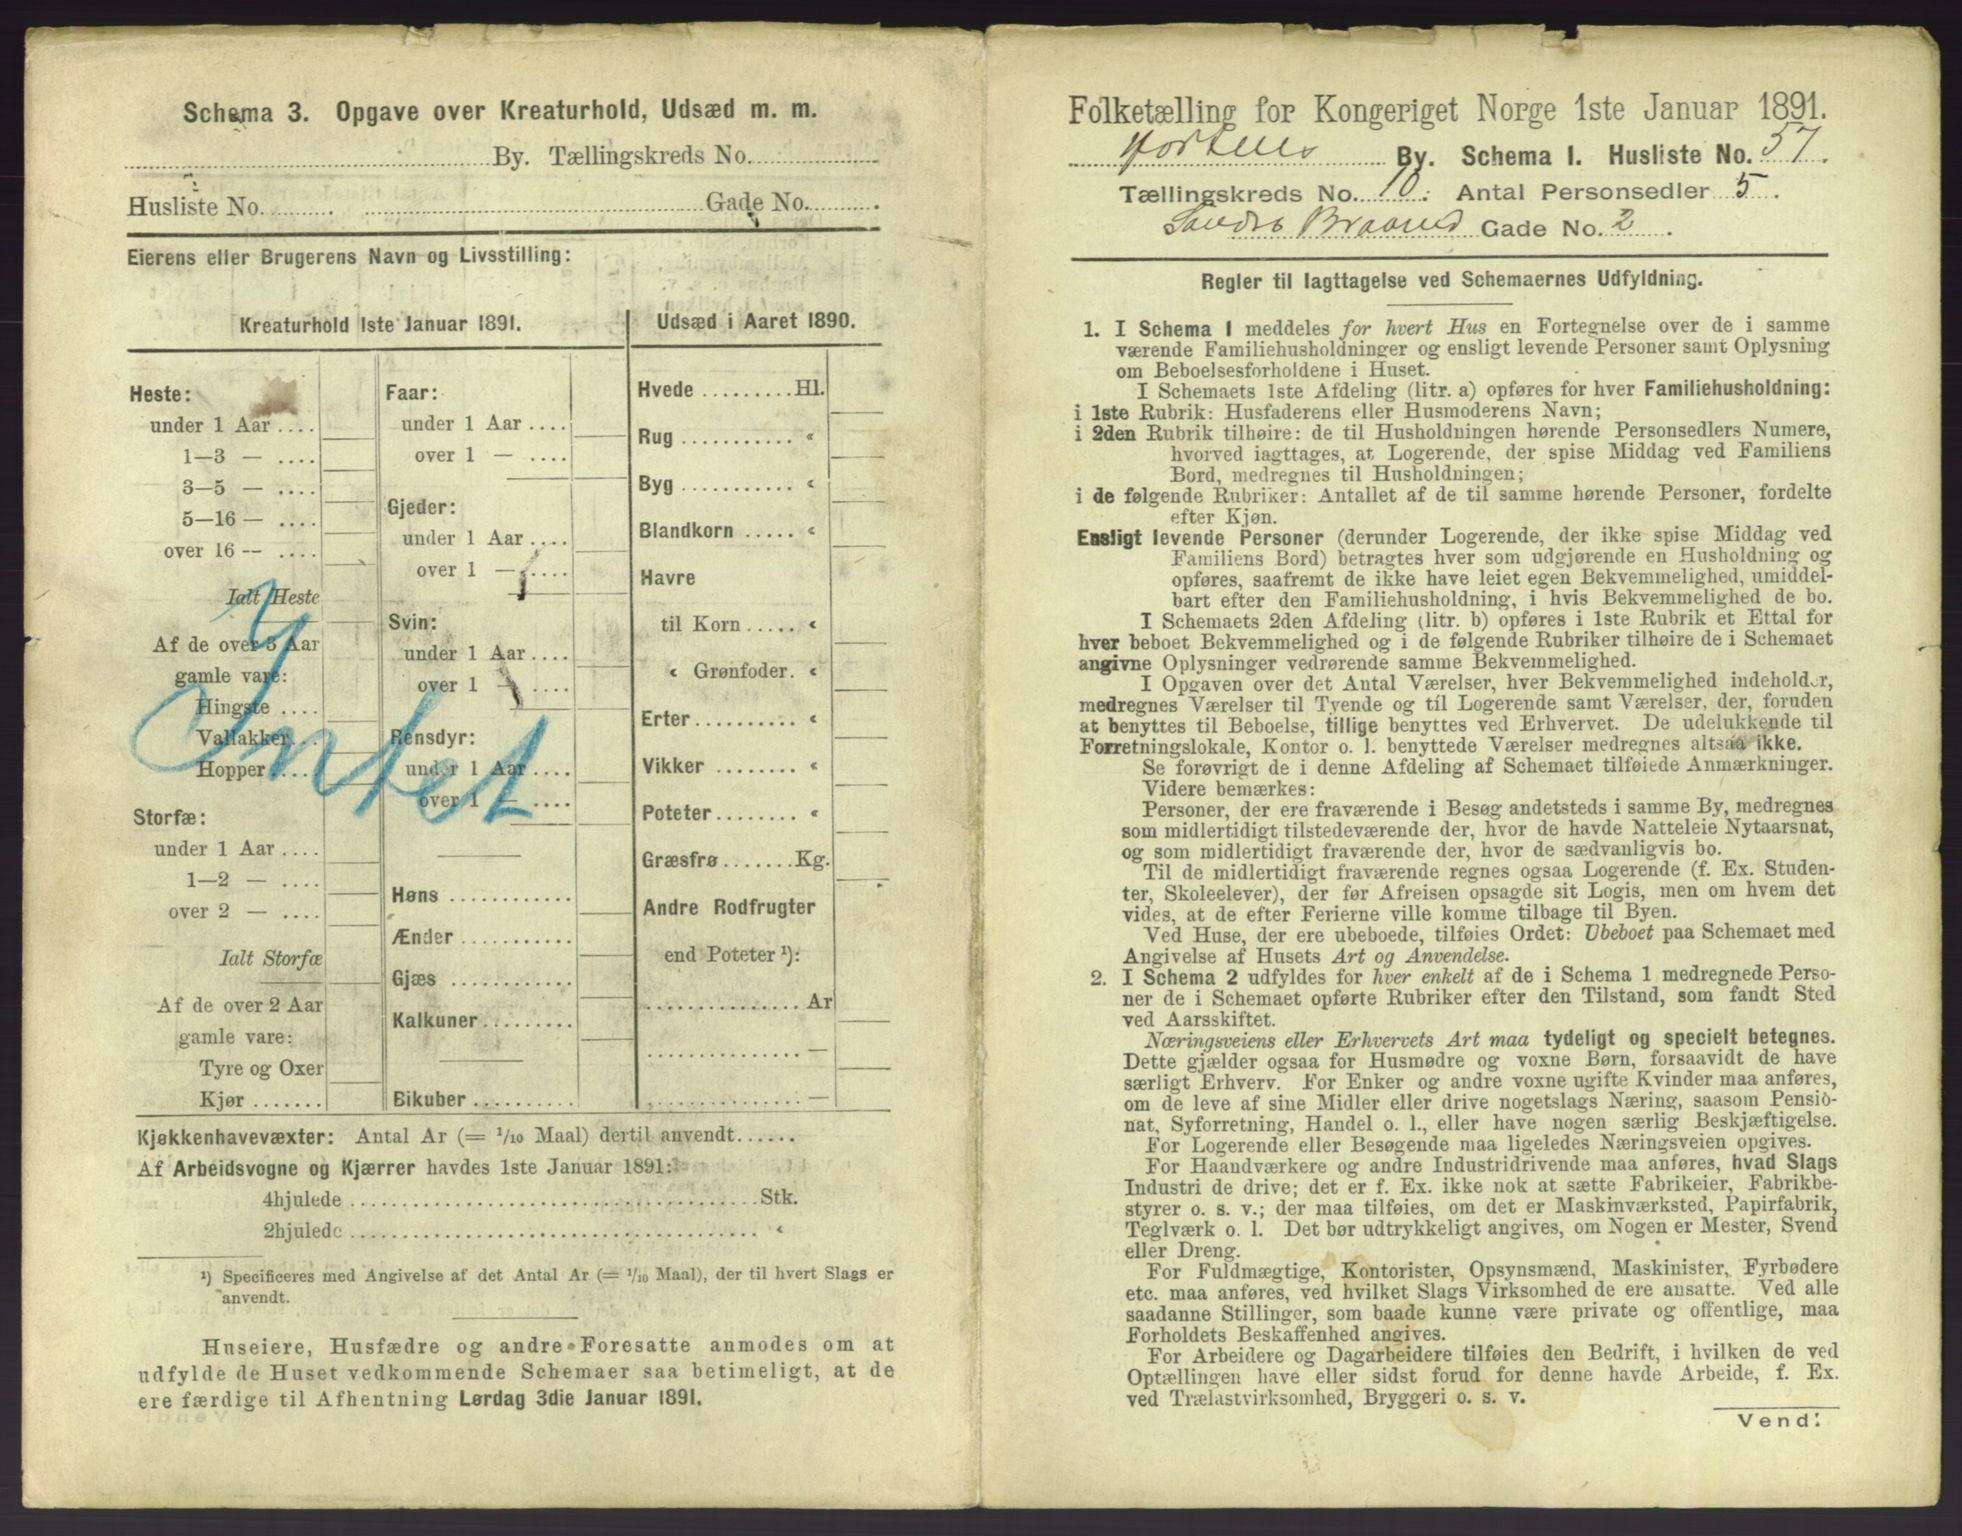 Schema 3. Opgave over Kreaturhold, Udsæd m. m.
By. Tællingskreds No.
Husliste No. Gade No.
Eierens eller Brugerens Navn og Livsstilling:
Kreaturhold 1ste Januar 1891.
Heste:
under 1 Aar
1—3 —
3—5 —
5—16 —
over 16 —
Ialt Heste
Af de over 3 Aar
gamle vare:
Hingste
Vallakker
Hopper
Intet
Storfæ:
under 1 Aar
1—2 —
over 2 —
Ialt Storfæ
Af de over 2 Aar
gamle vare:
Tyre og Oxer
Kjør
Faar:
under 1 Aar
over 1 —
Gjeder:
under 1 Aar
over 1 —
Svin:
under 1 Aar
over 1 —
Rensdyr:
under 1 Aar
over 1 —
Høns
Ænder
Gjæs
Kalkuner
Bikuber
Udsæd i Aaret 1890.
Hvede Hl.
Rug «
Byg «
Blandkorn «
Havre
til Korn «
« Grønfoder «
Erter «
Vikker «
Poteter «
Græsfrø Kg.
Andre Rodfrugter
end Poteter ¹):
Ar
—
—
Kjøkkenhavevæxter: Antal Ar (= 1/10 Maal) dertil anvendt
Af Arbeidsvogne og Kjærrer havdes 1ste Januar 1891:
4hjulede Stk.
2hjulede «
¹) Specificeres med Angivelse af det Antal Ar (= 1/10 Maal), der til hvert Slags er
anvendt.
Huseiere, Husfædre og andre Foresatte anmodes om at
udfylde de Huset vedkommende Schemaer saa betimeligt, at de
ere færdige til Afhentning Lørdag 3die Januar 1891.
Folketælling for Kongeriget Norge 1ste Januar 1891.
Hortens By. Schema I. Husliste No. 57.
Tællingskreds No. 10. Antal Personsedler 5.
Søndre Braarud Gade No. 2.
Regler til Iagttagelse ved Schemaernes Udfyldning.
1. I Schema I meddeles for hvert Hus en Fortegnelse over de i samme
værende Familiehusholdninger og ensligt levende Personer samt Oplysning
om Beboelsesforholdene i Huset.
I Schemaets 1ste Afdeling (litr. a) opføres for hver Familiehusholdning:
i 1ste Rubrik: Husfaderens eller Husmoderens Navn;
i 2den Rubrik tilhøire: de til Husholdningen hørende Personsedlers Numere,
hvorved iagttages, at Logerende, der spise Middag ved Familiens
Bord, medregnes til Husholdningen;
i de følgende Rubriker: Antallet af de til samme hørende Personer, fordelte
efter Kjøn.
Ensligt levende Personer (derunder Logerende, der ikke spise Middag ved
Familiens Bord) betragtes hver som udgjørende en Husholdning og
opføres, saafremt de ikke have leiet egen Bekvemmelighed, umiddel-
bart efter den Familiehusholdning, i hvis Bekvemmelighed de bo.
I Schemaets 2den Afdeling (litr. b) opføres i 1ste Rubrik et Ettal for
hver beboet Bekvemmelighed og i de følgende Rubriker tilhøire de i Schemaet
angivne Oplysninger vedrørende samme Bekvemmelighed.
I Opgaven over det Antal Værelser, hver Bekvemmelighed indeholder,
medregnes Værelser til Tyende og til Logerende samt Værelser, der, foruden
at benyttes til Beboelse, tillige benyttes ved Erhvervet. De udelukkende til
Forretningslokale, Kontor o. l. benyttede Værelser medregnes altsaa ikke.
Se forøvrigt de i denne Afdeling af Schemaet tilføiede Anmærkninger.
Videre bemærkes:
Personer, der ere fraværende i Besøg andetsteds i samme By, medregnes
som midlertidigt tilstedeværende der, hvor de havde Natteleie Nytaarsnat,
og som midlertidigt fraværende der, hvor de sædvanligvis bo.
Til de midlertidigt fraværende regnes ogsaa Logerende (f. Ex. Studen-
ter, Skoleelever), der før Afreisen opsagde sit Logis, men om hvem det
vides, at de efter Ferierne ville komme tilbage til Byen.
Ved Huse, der ere ubeboede, tilføies Ordet: Ubeboet paa Schemaet med
Angivelse af Husets Art og Anvendelse.
2. I Schema 2 udfyldes for hver enkelt af de i Schema 1 medregnede Perso-
ner de i Schemaet opførte Rubriker efter den Tilstand, som fandt Sted
ved Aarsskiftet.
Næringsveiens eller Erhvervets Art maa tydeligt og specielt betegnes.
Dette gjælder ogsaa for Husmødre og voxne Børn, forsaavidt de have
særligt Erhverv. For Enker og andre voxne ugifte Kvinder maa anføres,
om de leve af sine Midler eller drive nogetslags Næring, saasom Pensio-
nat, Syforretning, Handel o. l., eller have nogen særlig Beskjæftigelse.
For Logerende eller Besøgende maa ligeledes Næringsveien opgives.
For Haandværkere og andre Industridrivende maa anføres, hvad Slags
Industri de drive; det er f. Ex. ikke nok at sætte Fabrikeier, Fabrikbe-
styrer o. s. v.; der maa tilføies, om det er Maskinværksted, Papirfabrik,
Teglværk o. l. Det bør udtrykkeligt angives, om Nogen er Mester, Svend
eller Dreng.
For Fuldmægtige, Kontorister, Opsynsmænd, Maskinister, Fyrbødere
etc. maa anføres, ved hvilket Slags Virksomhed de ere ansatte. Ved alle
saadanne Stillinger, som baade kunne være private og offentlige, maa
Forholdets Beskaffenhed angives.
For Arbeidere og Dagarbeidere tilføies den Bedrift, i hvilken de ved
Optællingen have eller sidst forud for denne havde Arbeide, f. Ex.
ved Trælastvirksomhed, Bryggeri o. s. v.
Vend!